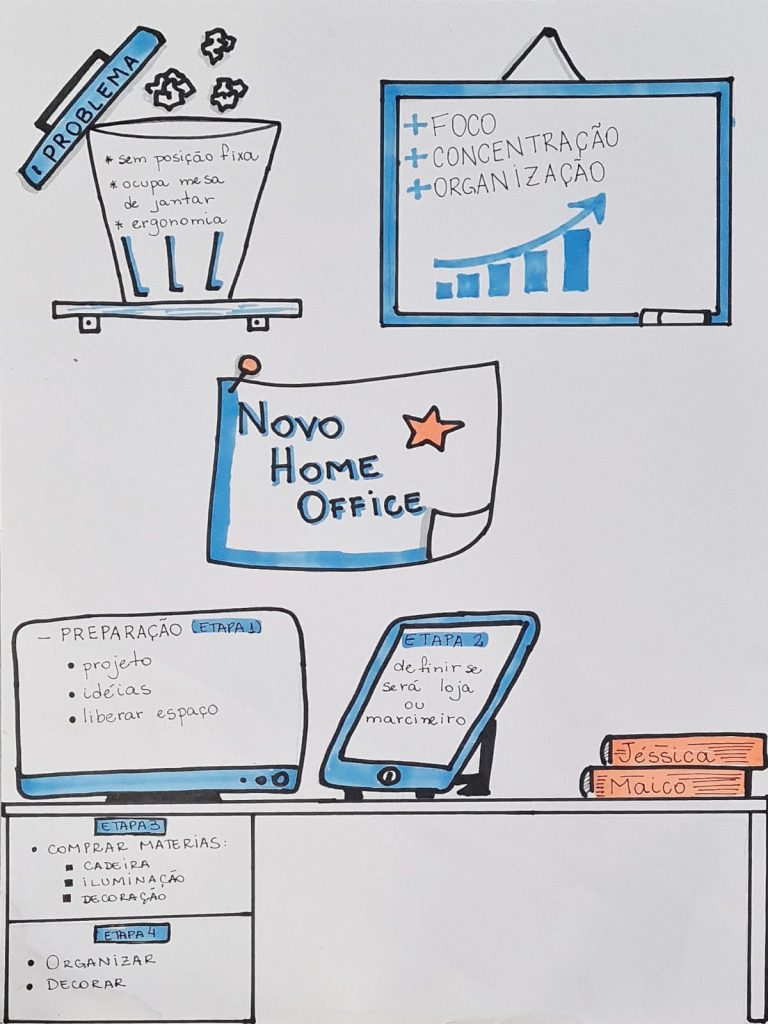 PROBLEMA
* sem posição fixa
* ocupa mesa
de jantar
* ergonomia
+ FOCO
+ CONCENTRAÇÃO
+ ORGANIZAÇÃO
NOVO
HOME
OFFICE
- PREPARAÇÃO (ETAPA 1)
• projeto
• idéias
• liberar espaço
ETAPA 2
definir se
será loja
ou
marcineiro
Jéssica
Maico
ETAPA 3
• COMPRAR MATERIAS:
▪ CADEIRA
▪ ILUMINAÇÃO
▪ DECORAÇÃO
ETAPA 4
• ORGANIZAR
• DECORAR